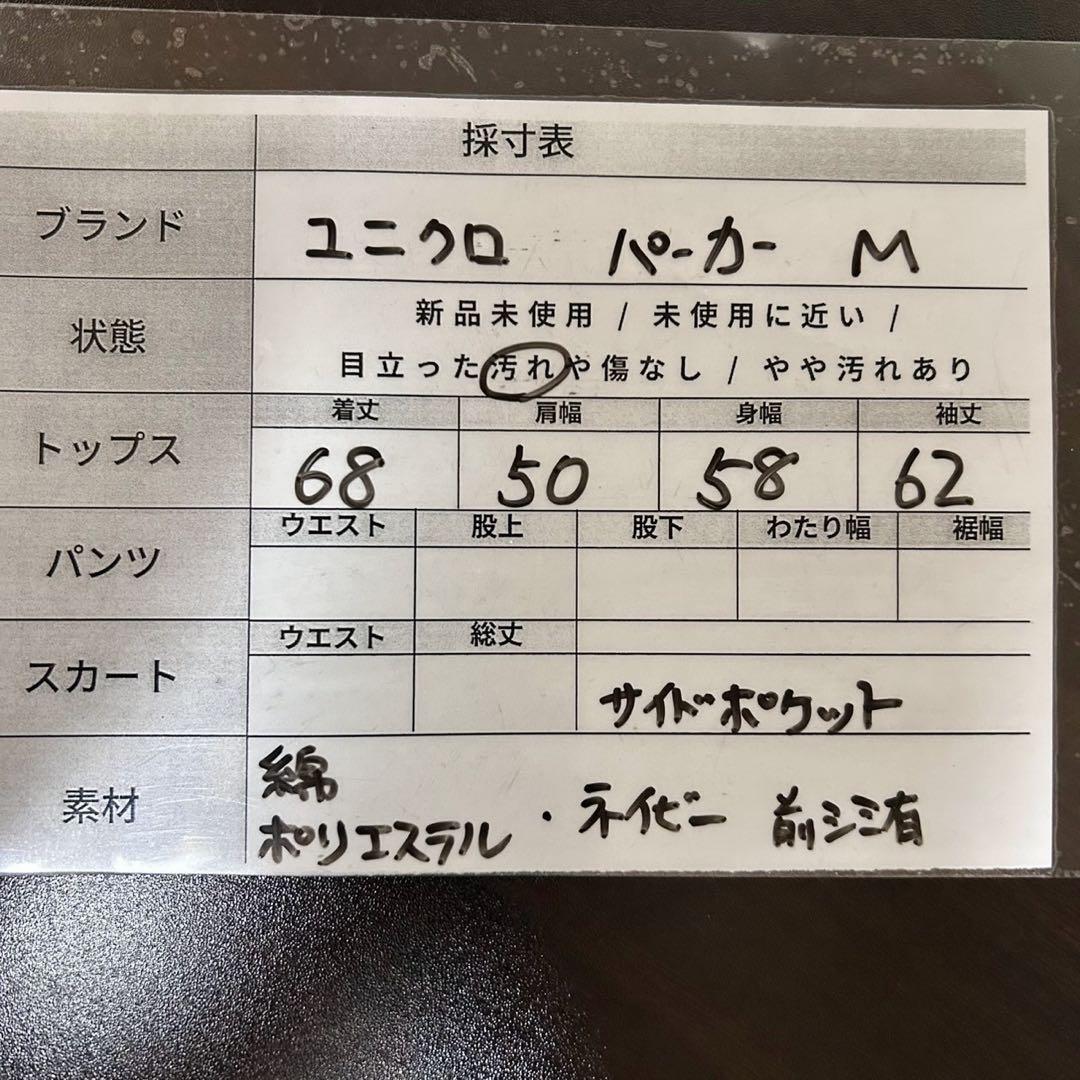 採寸表
ブランド
ユニクロ パーカー M
状態
新品未使用 / 未使用に近い /
目立った汚れや傷なし / やや汚れあり
トップス
着丈 肩幅 身幅 袖丈
68 50 58 62
パンツ
ウエスト 股上 股下 わたり幅 裾幅
スカート
ウエスト 総丈
サイドポケット
素材
綿
ポリエステル ・ ネイビー 前シミ有